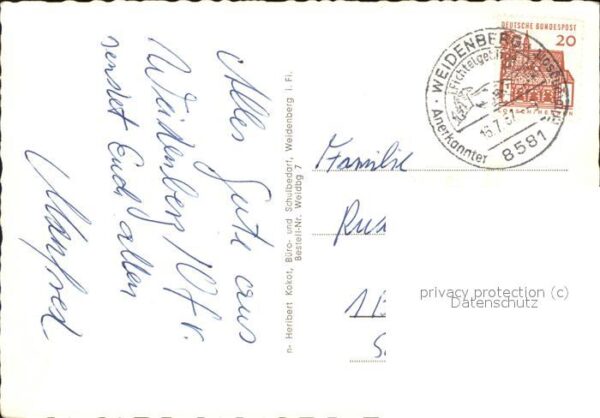 Alles Gute aus
Weidenberg / Ofr.
sendet Euch allen
Manfred
n- Heribert Kokot, Büro- und Schulbedarf, Weidenberg i. Fi.
Bestell-Nr. Weidbg 7
DEUTSCHE BUNDESPOST
20
WEIDENBERG
(Fichtelgeb.)
Anerkannter
8581
Familie
privacy protection (c)
Datenschutz